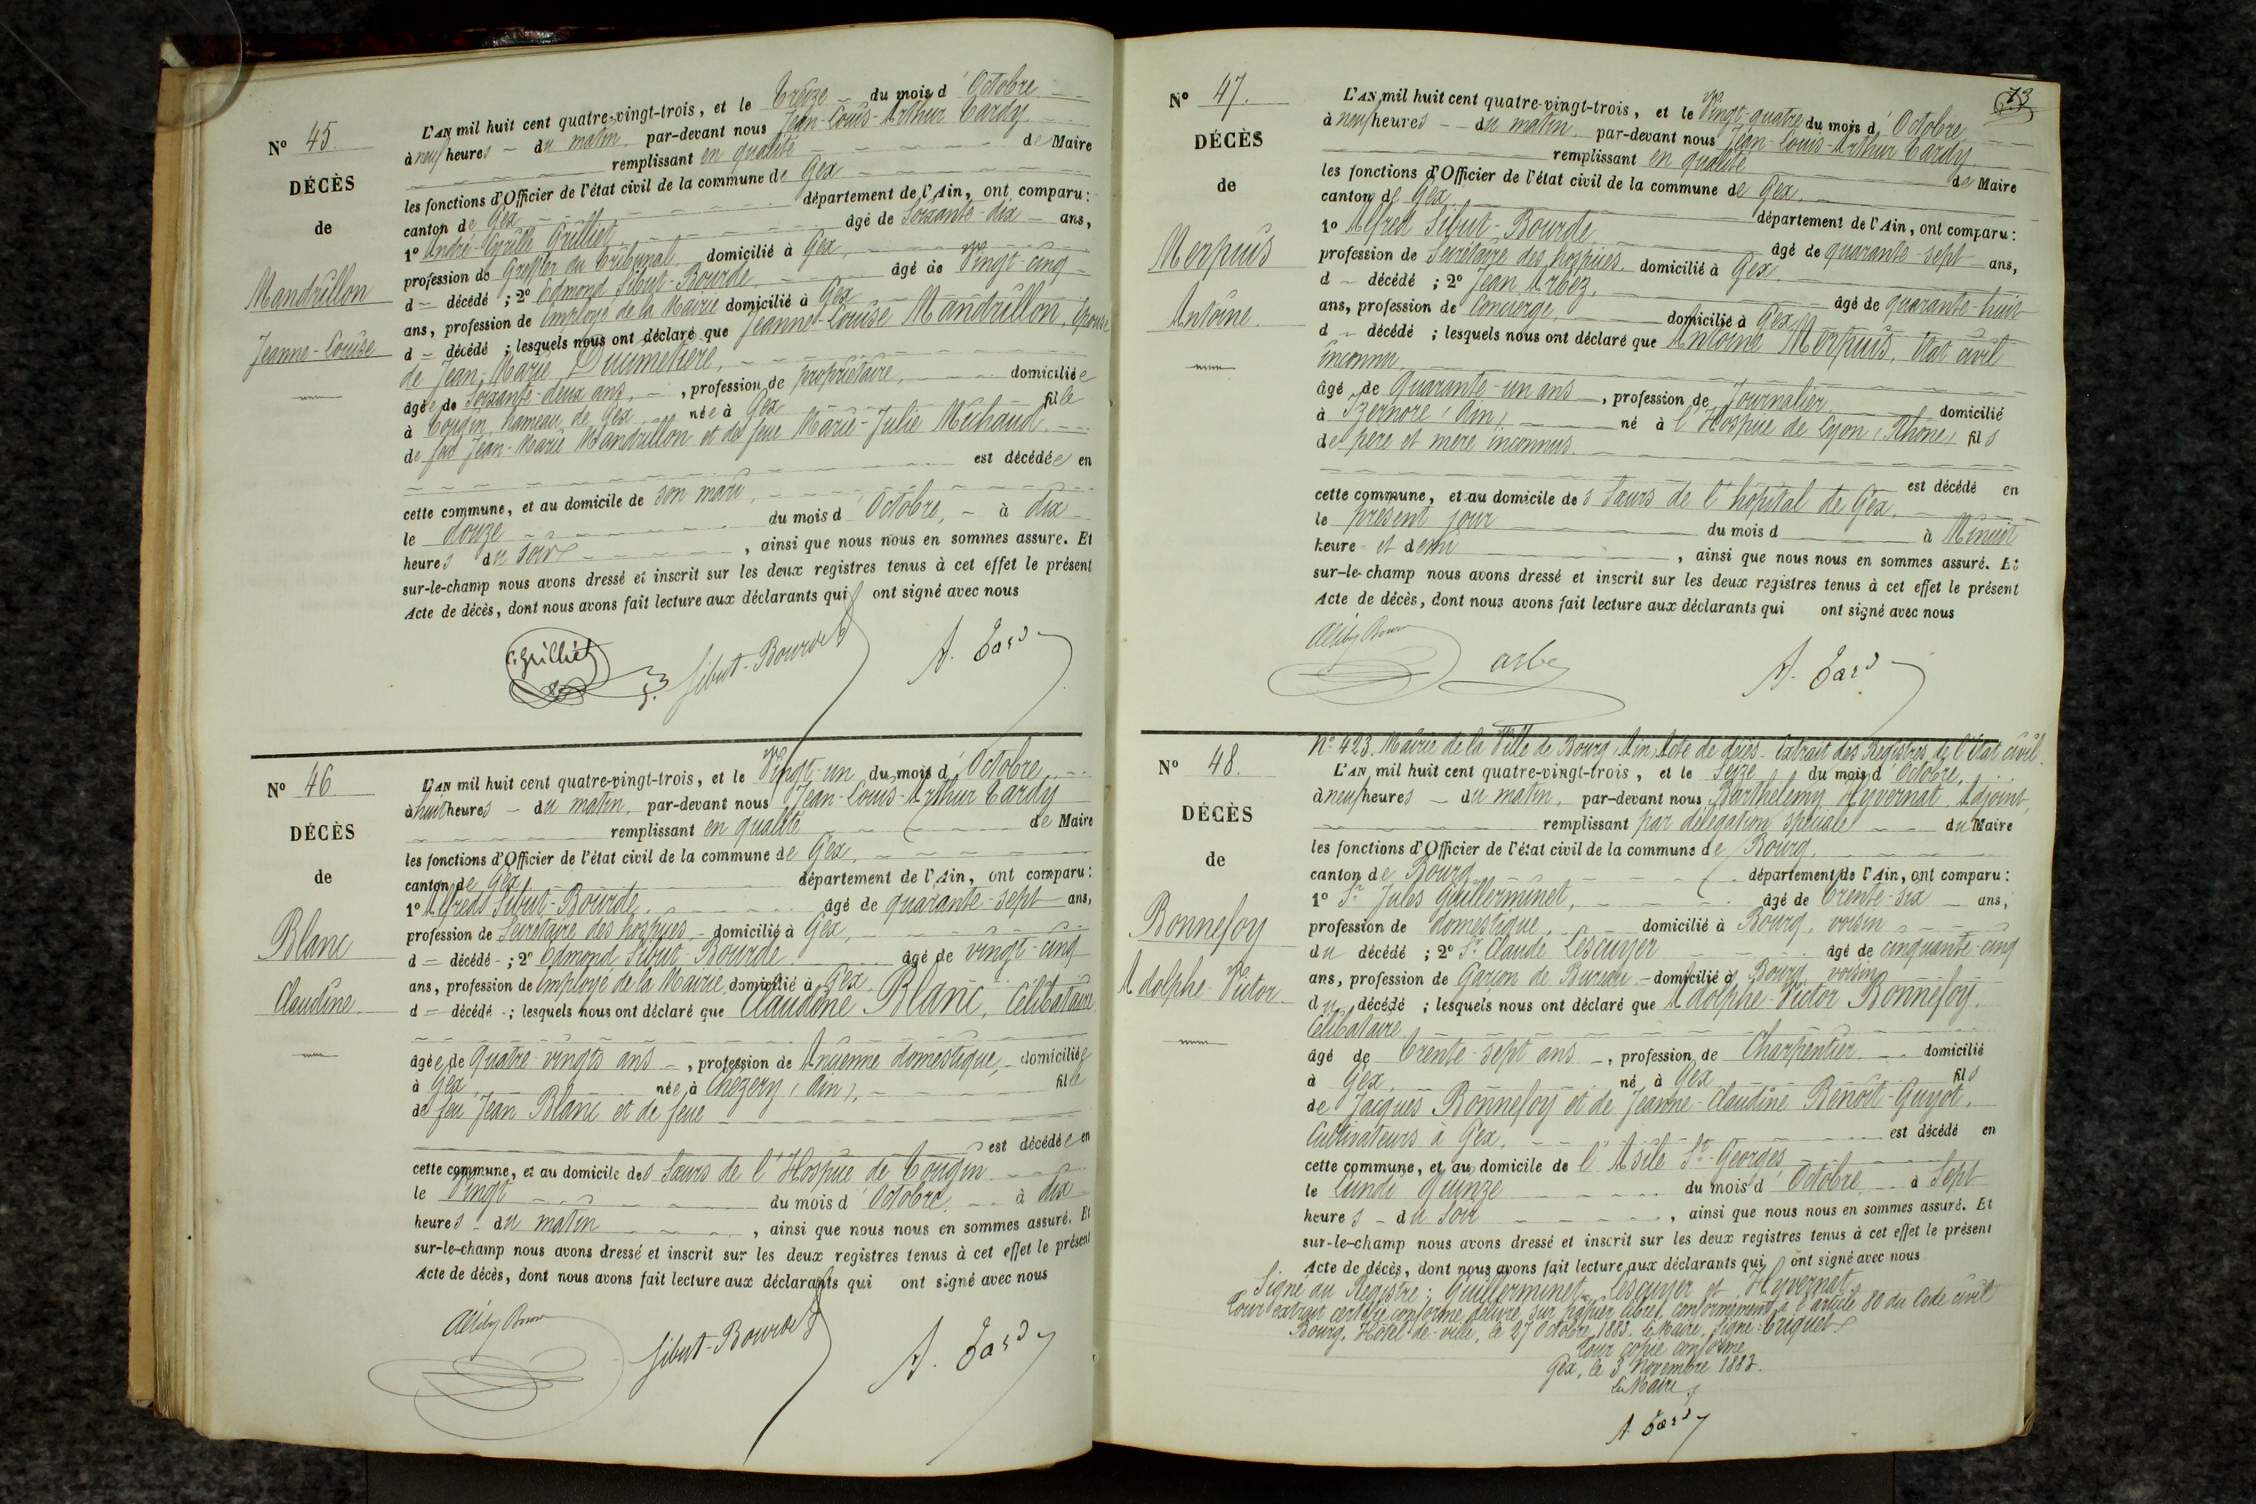 N° 45.
DÉCÈS
de
Mandrillon
Jeanne-Louise
L'AN mil huit cent quatre-vingt-trois, et le Treize du mois d'Octobre
à neuf heures du matin, par-devant nous Jean-Louis-Arthur Tardy
remplissant en qualité de Maire
les fonctions d'Officier de l'état civil de la commune de Gex
canton de Gex département de l'Ain, ont comparu :
1° André-Cyrille Grilliet âgé de Soixante-dix ans,
profession de Greffier du Tribunal domicilié à Gex,
d = décédé ; 2° Edmond Sibut-Bourde, âgé de Vingt-cinq
ans, profession de Employé de la Mairie domicilié à Gex
d = décédé ; lesquels nous ont déclaré que Jeanne-Louise Mandrillon, Epouse
de Jean-Marie Ducimetière,
âgée de Soixante-deux ans, profession de propriétaire, domiciliée
à Tougin, hameau de Gex née à Gex fille
de feu Jean-Marie Mandrillon et de feue Marie-Julie Michaud
est décédée en
cette commune, et au domicile de son mari,
le douze du mois d'Octobre, à dix
heures du soir, ainsi que nous nous en sommes assuré. Et
sur-le-champ nous avons dressé et inscrit sur les deux registres tenus à cet effet le présent
Acte de décès, dont nous avons fait lecture aux déclarants qui ont signé avec nous
C. Grilliet Sibut-Bourde A. Tardy
N° 46
DÉCÈS
de
Blanc
Claudine
L'AN mil huit cent quatre-vingt-trois, et le Vingt-un du mois d'Octobre
à huit heures du matin, par-devant nous Jean-Louis-Arthur Tardy
remplissant en qualité de Maire
les fonctions d'Officier de l'état civil de la commune de Gex,
canton de Gex département de l'Ain, ont comparu :
1° Alfred Sibut-Bourde, âgé de quarante-sept ans,
profession de Secrétaire des hospices, domicilié à Gex,
d = décédé ; 2° Edmond Sibut-Bourde âgé de vingt-cinq
ans, profession de Employé de la Mairie domicilié à Gex
d = décédé ; lesquels nous ont déclaré que Claudine Blanc, Célibataire
âgée de Quatre-vingts ans, profession de Ancienne domestique, domiciliée
à Gex, née à Chézery (Ain), fille
de feu Jean Blanc et de feue
est décédée en
cette commune, et au domicile des Sœurs de l'Hospice de Tougin
le Vingt du mois d'Octobre à dix
heures du matin, ainsi que nous nous en sommes assuré. Et
sur-le-champ nous avons dressé et inscrit sur les deux registres tenus à cet effet le présent
Acte de décès, dont nous avons fait lecture aux déclarants qui ont signé avec nous
Sibut-Bourde A. Tardy
73
N° 47.
DÉCÈS
de
Merpuis
Antoine
L'AN mil huit cent quatre-vingt-trois, et le Vingt-quatre du mois d'Octobre
à neuf heures du matin par-devant nous Jean-Louis-Arthur Tardy
remplissant en qualité de Maire
les fonctions d'Officier de l'état civil de la commune de Gex,
canton de Gex département de l'Ain, ont comparu :
1° Alfred Sibut-Bourde, âgé de quarante-sept ans,
profession de Secrétaire des hospices, domicilié à Gex
d = décédé ; 2° Jean Arbez, âgé de quarante-huit
ans, profession de Concierge, domicilié à Gex
d = décédé ; lesquels nous ont déclaré que Antoine Merpuis, état civil
inconnu
âgé de Quarante-un ans, profession de Journalier domicilié
à Izernore (Ain), né à l'Hospice de Lyon (Rhône) fils
de père et mère inconnus.
est décédé en
cette commune, et au domicile des Sœurs de l'hôpital de Gex,
le présent jour du mois d à Minuit
heure et demi, ainsi que nous nous en sommes assuré. Et
sur-le-champ nous avons dressé et inscrit sur les deux registres tenus à cet effet le présent
Acte de décès, dont nous avons fait lecture aux déclarants qui ont signé avec nous
arbez A. Tardy
N° 48.
DÉCÈS
de
Bonnefoy
Adolphe-Victor
N° 423. Mairie de la Ville de Bourg (Ain) Acte de décès - Extrait des Registres de l'état civil.
L'AN mil huit cent quatre-vingt-trois, et le Seize du mois d'Octobre,
à neuf heures du matin, par-devant nous Barthélemy Hyvernat, Adjoint,
remplissant par délégation spéciale du Maire
les fonctions d'Officier de l'état civil de la commune de Bourg,
canton de Bourg département de l'Ain, ont comparu :
1° Sr Jules Guillerminet, âgé de Trente-six ans,
profession de domestique, domicilié à Bourg, voisin
du décédé ; 2° Sr Claude Lescuyer âgé de cinquante-cinq
ans, profession de Garçon de Bureau domicilié à Bourg voisin
du décédé ; lesquels nous ont déclaré que Adolphe-Victor Bonnefoy,
Célibataire
âgé de Trente-sept ans, profession de Charpentier domicilié
à Gex, né à Gex fils
de Jacques Bonnefoy et de Jeanne-Claudine Benoit-Guyot,
Cultivateurs à Gex, est décédé en
cette commune, et au domicile de l'Asile St-Georges
le Lundi Quinze du mois d'Octobre à Sept
heures du soir, ainsi que nous nous en sommes assuré. Et
sur-le-champ nous avons dressé et inscrit sur les deux registres tenus à cet effet le présent
Acte de décès, dont nous avons fait lecture aux déclarants qui ont signé avec nous
Signé au Registre : Guillerminet, Lescuyer et Hyvernat.
Pour extrait certifié conforme délivré sur papier libre, conformément à l'article 80 du Code civil
Bourg, Hôtel-de-ville, le 27 Octobre 1883. Le Maire, Signé : Triquet
Pour copie conforme
Gex, le 3 Novembre 1883.
Le Maire,
A. Tardy